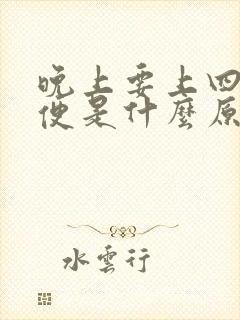 晚上要上四
便是什麼原
水雲行